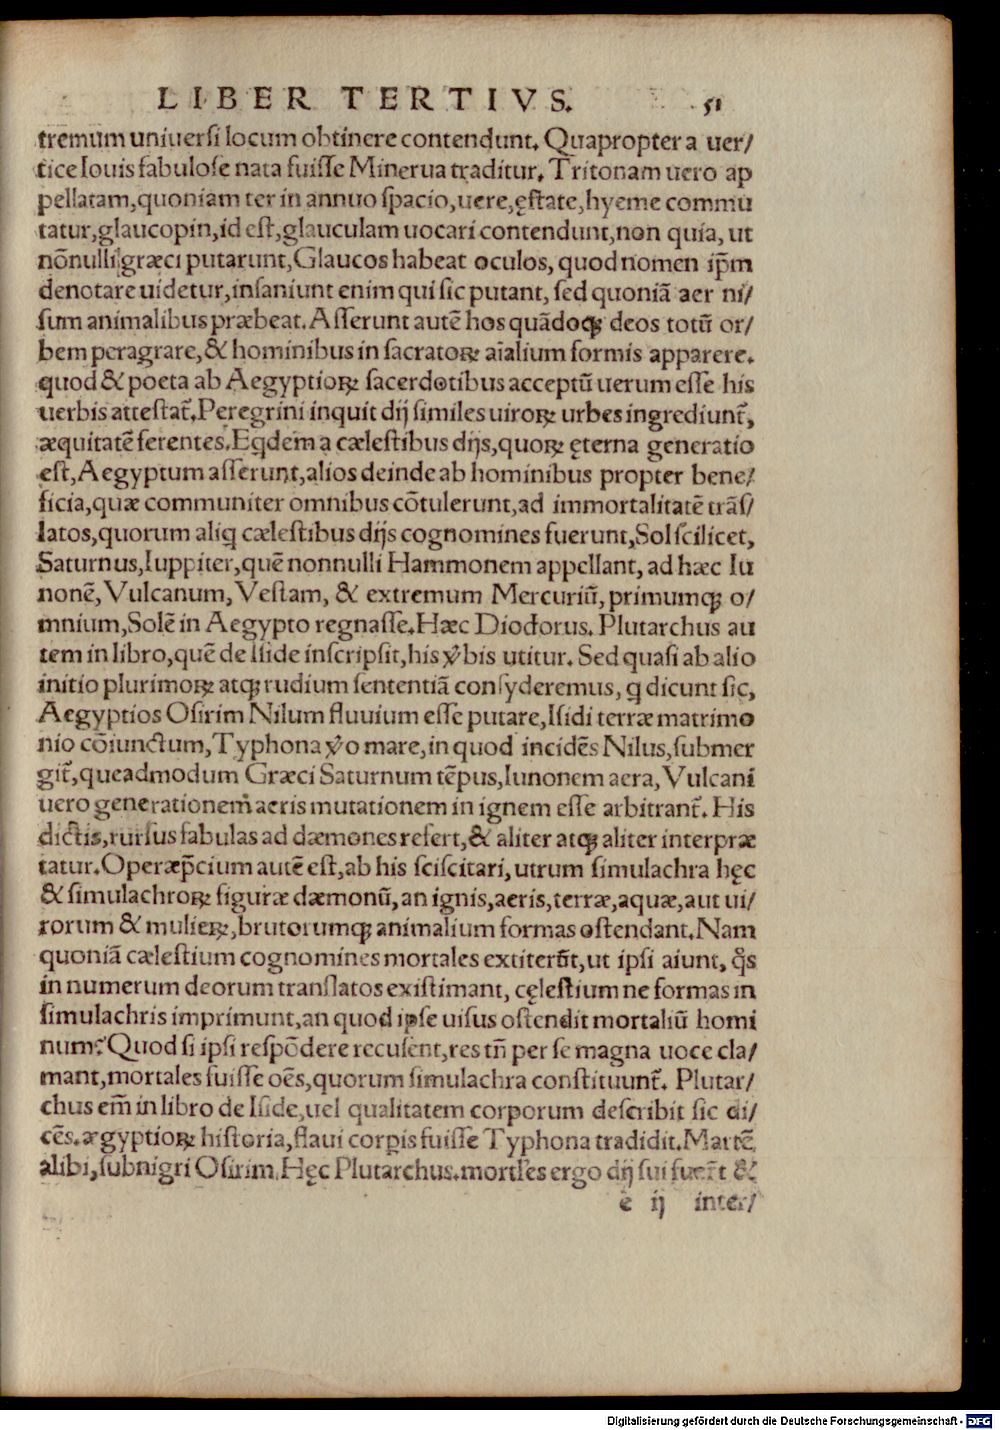 LIBER TERTIVS. 51
tremum uniuersi locum obtinere contendunt. Quapropter a uer/
tice Iouis fabulose nata fuisse Minerua traditur. Tritonam uero ap
pellatam, quoniam ter in annuo spacio, uere, ęstate, hyeme commu
tatur, glaucopin, id est, glauculam uocari contendunt, non quia, ut
nōnulli græci putarunt, Glaucos habeat oculos, quod nomen ip̄m
denotare uidetur, insaniunt enim qui sic putant, sed quoniā aer ni/
sum animalibus præbeat. Asserunt autē hos quādoqꝫ deos totū or/
bem peragrare, & hominibus in sacratoꝝ aīalium formis apparere.
quod & poeta ab Aegyptioꝝ sacerdotibus acceptū uerum esse his
uerbis attestat᷑. Peregrini inquit dij similes uiroꝝ urbes ingrediunt᷑,
æquitatē ferentes. Eqdem a cælestibus dijs, quoꝝ ęterna generatio
est, Aegyptum asserunt, alios deinde ab hominibus propter bene/
ficia, quæ communiter omnibus cōtulerunt, ad immortalitatē trās/
latos, quorum aliq cælestibus dijs cognomines fuerunt, Sol scilicet,
Saturnus, Iuppiter, quē nonnulli Hammonem appellant, ad hæc Iu
nonē, Vulcanum, Vestam, & extremum Mercuriū, primumqꝫ o/
mnium, Solē in Aegypto regnasse. Hæc Diodorus. Plutarchus au
tem in libro, quē de Iside inscripsit, his v̓bis utitur. Sed quasi ab alio
initio plurimoꝝ atqꝫ rudium sententiā consyderemus, q dicunt sic,
Aegyptios Osirim Nilum fluuium esse putare, Isidi terræ matrimo
nio cōiunctum, Typhona v̓o mare, in quod incidēs Nilus, submer
git᷑, queadmodum Græci Saturnum tēpus, Iunonem aera, Vulcani
uero generationem aeris mutationem in ignem esse arbitrant᷑. His
dictis, rursus fabulas ad dæmones refert, & aliter atqꝫ aliter interpræ
tatur. Operæp̄cium autē est, ab his sciscitari, utrum simulachra hęc
& simulachroꝝ figuræ dæmonū, an ignis, aeris, terræ, aquæ, aut ui/
rorum & mulieꝝ, brutorumqꝫ animalium formas ostendant. Nam
quoniā cælestium cognomines mortales extiterūt, ut ipsi aiunt, q̊s
in numerum deorum translatos existimant, cęlestium ne formas in
simulachris imprimunt, an quod ipse uisus ostendit mortaliū homi
num? Quod si ipsi respōdere recusent, res tn̄ per se magna uoce cla/
mant, mortales fuisse oēs, quorum simulachra constituunt᷑. Plutar/
chus em̄ in libro de Iside, uel qualitatem corporum describit sic di/
cēs. ægyptioꝝ historia, flaui corpis fuisse Typhona tradidit. Martē
alibi, subnigri Osirim. Hęc Plutarchus. mortles ergo dij sui fuer̄t &
e ij inter/
Digitalisierung gefördert durch die Deutsche Forschungsgemeinschaft - DFG